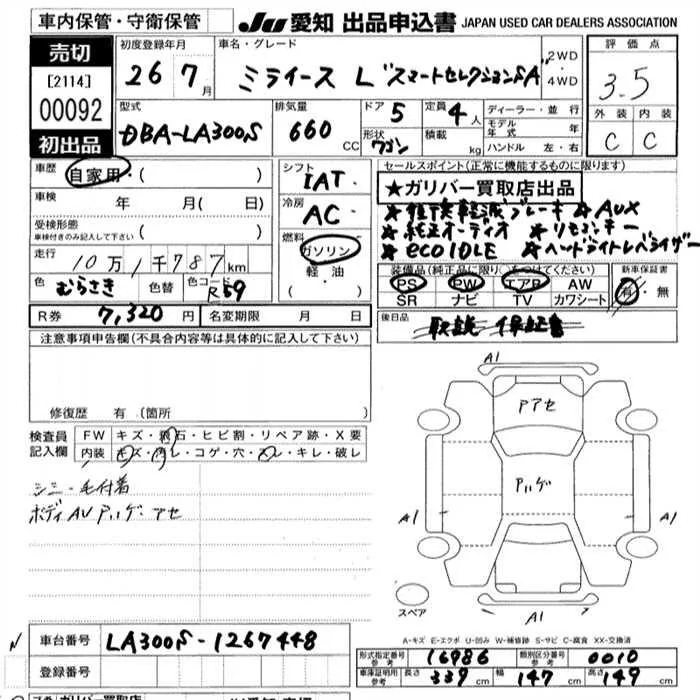 車内保管・守衛保管
JU 愛知 出品申込書 JAPAN USED CAR DEALERS ASSOCIATION
売切
[2114]
00092
初出品
初度登録年月
26年 7月
車名・グレード
ミライース L "スマートセレクションSA"
2WD
4WD
評価点
3.5
外装 内装
C C
型式
DBA-LA300S
排気量
660 CC
ドア 5
形状 ワゴン
定員 4人
積載 kg
ディーラー・並行
モデル年式 年
ハンドル 左・右
車歴 自家用・( )
車検 年 月( 日)
受検形態
車検付きのみ記入して下さい ( )
走行 10万1千787km
色 むらさき 色替 色コード R59
R券 7,320円 名変期限 月 日
シフト
IAT
冷房
AC
燃料
ガソリン
軽油
( )
セールスポイント(正常に機能するものに限ります)
★ガリバー買取店出品
★衝突軽減ブレーキ ★AUX
★純正オーディオ ★リモコンキー
★eco IDLE ★ヘッドライトレベライザー
装備品(純正品に限り○をつけてください)
PS PW エアB AW
SR ナビ TV カワシート
新車保証書
有・無
後日品 取説 保証書
注意事項申告欄(不具合内容等は具体的に記入して下さい)
修復歴 有 (箇所
検査員記入欄
FW キズ・飛石・ヒビ割・リペア跡・X要
内装 キズ・汚レ・コゲ・穴・スレ・キレ・破レ
シミー毛付着
ボディAU アハゲ アセ
A1
アセ
アハゲ
A1
A1
A1
スペア
A-キズ E-エクボ U-凹み W-補修跡 S-サビ C-腐食 XX-交換済
車台番号 LA300S-1267448
登録番号
形式指定番号 参考 16986 類別区分番号 参考 0010
車庫証明用 参考 長さ 339cm 幅 147cm 高さ 149cm
ガリバー買取店